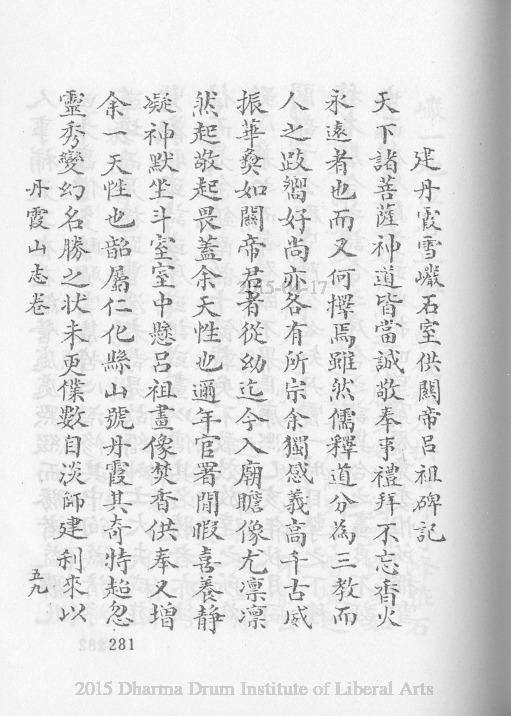 建丹霞雪巘石室供關帝呂祖碑記
天下諸菩薩神道皆當誠敬奉事禮拜不忘香火
永遠者也而又何擇焉雖然儒釋道分為三教而
人之跂嚮好尚亦各有所宗余獨感義高千古威
振華夷如關帝君者從幼迄今入廟瞻像尤凛凛
然起敬起畏蓋余天性也邇年官署閒暇喜養靜
凝神默坐斗室室中懸呂祖畫像焚香供奉又增
余一天性也韶屬仁化縣山號丹霞其奇特超忽
靈秀變幻名勝之狀未更僕數自淡師建刹來以
丹霞山志卷
五九
281
2015 Dharma Drum Institute of Liberal Arts